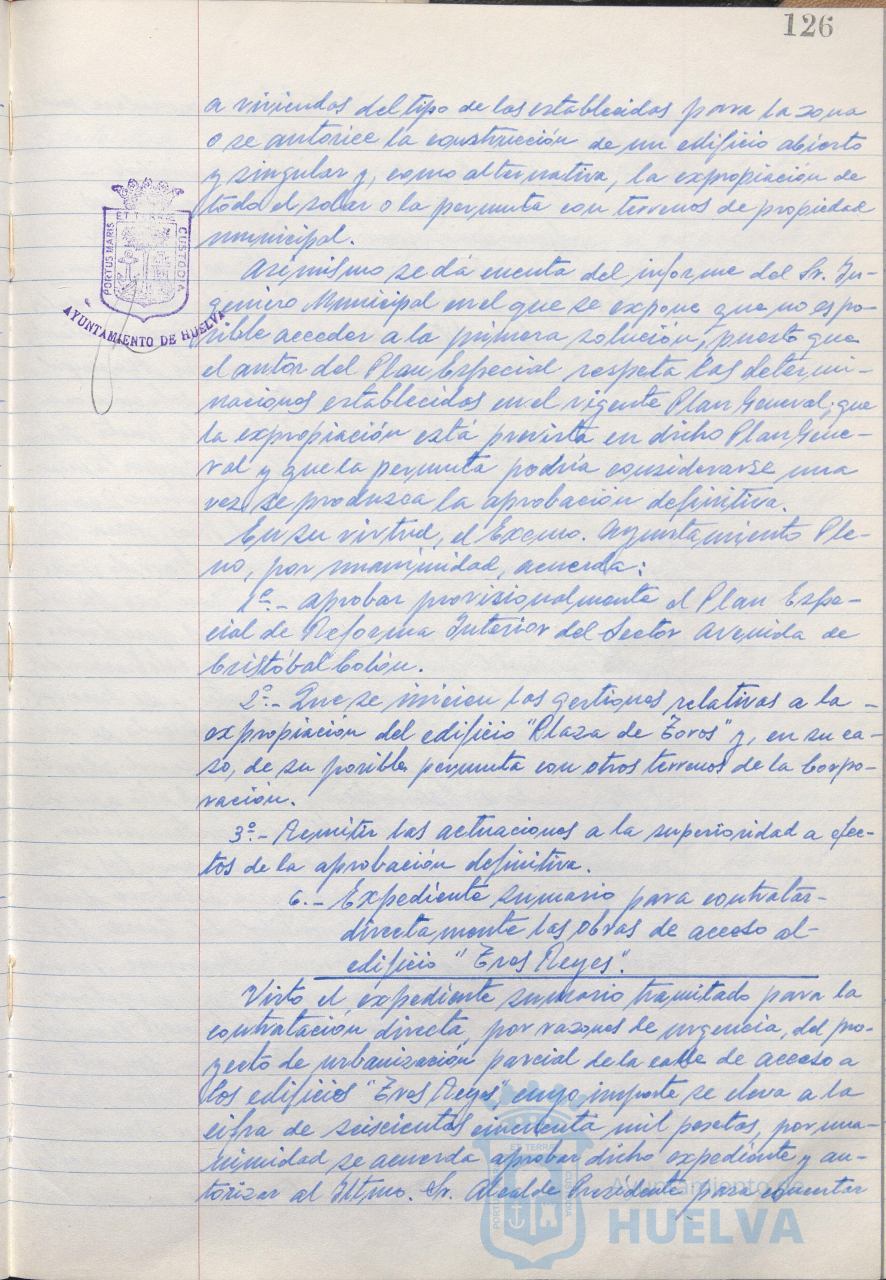 126
a viviendas del tipo de las establecidas para la zona
o se autorice la construcción de un edificio abierto
y singular y, como alternativa, la expropiación de
todo el solar o la permuta con terrenos de propiedad
municipal.
Asimismo, se dá cuenta del informe del Sr. In-
geniero Municipal en el que se expone que no es po-
sible acceder a la primera solución, puesto que
el autor del Plan Especial respeta las determi-
naciones establecidas en el vigente Plan General; que
la expropiación está prevista en dicho Plan Gene-
ral y que la permuta podría considerarse una
vez se produzca la aprobación definitiva.
En su virtud, el Excmo. Ayuntamiento Ple-
no, por unanimidad, acuerda:
1º.- Aprobar provisionalmente el Plan Espe-
cial de Reforma Interior del Sector Avenida de
Cristóbal Colón.
2º.- Que se inicien las gestiones relativas a la
expropiación del edificio "Plaza de Toros" y, en su ca-
so, de su posible permuta con otros terrenos de la Corpo-
ración.
3º.- Remitir las actuaciones a la superioridad a efec-
tos de la aprobación definitiva.
6.- Expediente sumario para contratar
directamente las obras de acceso al
edificio "Tres Reyes".
Visto el expediente sumario tramitado para la
contratación directa, por razones de urgencia, del pro-
yecto de urbanización parcial de la calle de acceso a
los edificios "Tres Reyes", cuyo importe se eleva a la
cifra de seiscientas cincuenta mil pesetas, por una-
nimidad se acuerda aprobar dicho expediente y au-
torizar al Iltmo. Sr. Alcalde Presidente para concertar
PORTUS MARIS
ET TERRÆ
CUSTODIA
AYUNTAMIENTO DE HUELVA
PORTUS
ET TERRÆ
CUSTODIA
Ayuntamiento de
HUELVA